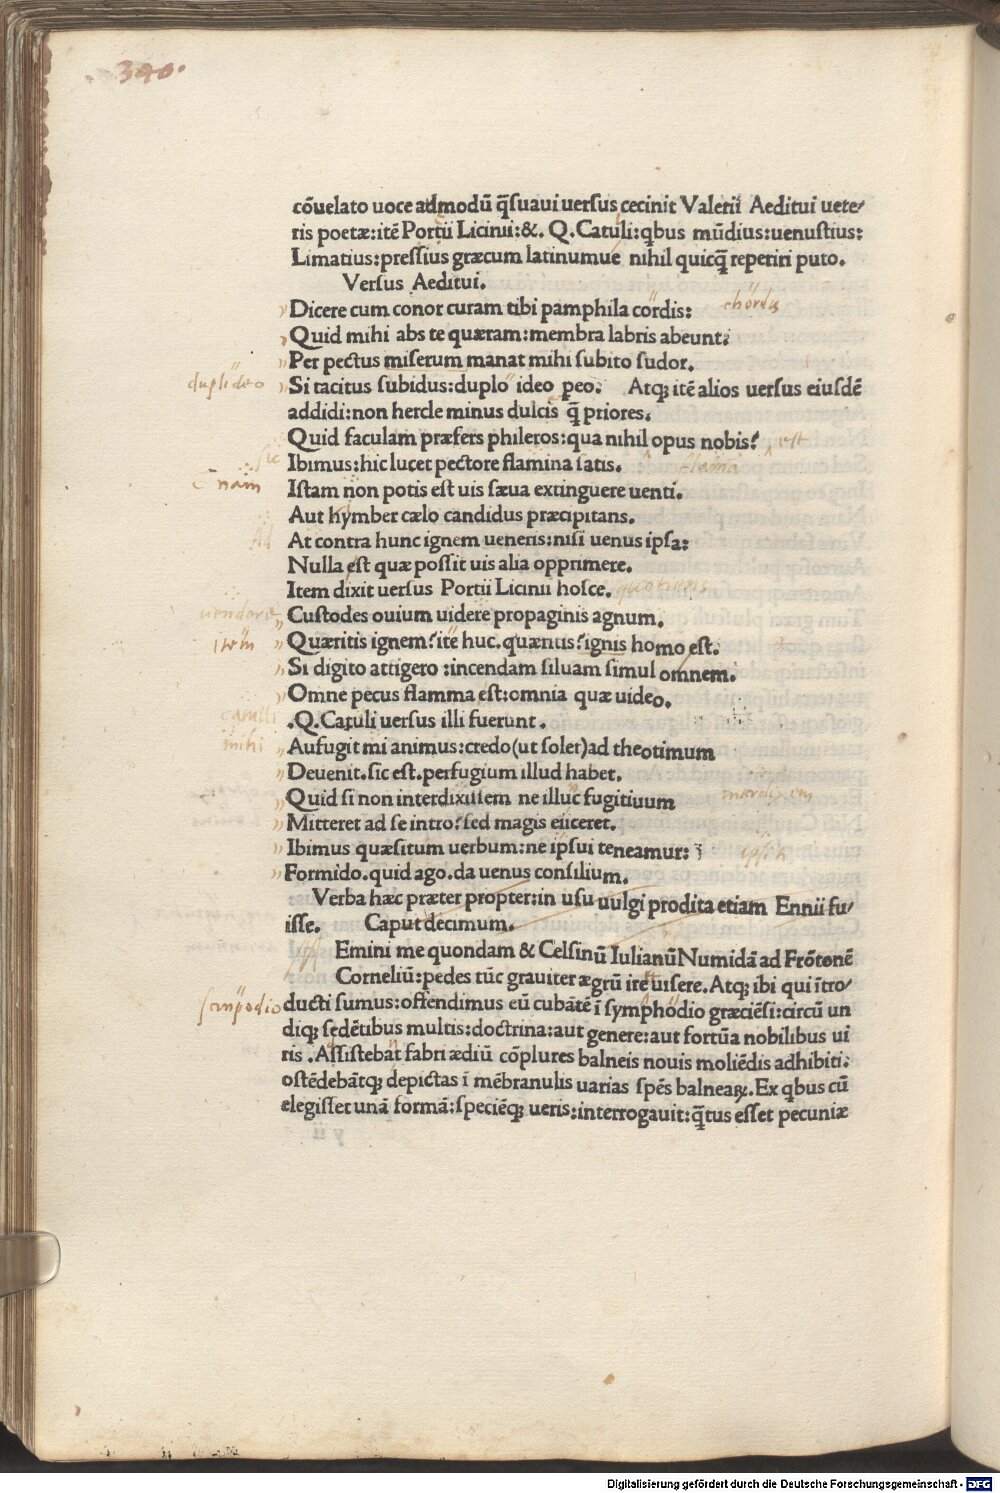 .340.
cõuelato uoce admodũ q̃suaui uersus cecinit Valerii Aeditui uete/
ris poetæ:itẽ Portii Licinii:&. Q. Catuli:qbus mũdius:uenustius:
Limatius:pressius græcum latinumue nihil quicq̃ reperiri puto.
Versus Aeditui.
Dicere cum conor curam tibi pamphila cordis: chordis
Quid mihi abs te quæram:membra labris abeunt:
Per pectus miserum manat mihi subito sudor.
duplideo Si tacitus subidus:duplo ideo peo. Atq; itẽ alios uersus eiusdẽ
addidi:non hercle minus dulcis q̃ priores.
Quid faculam præfers phileros:qua nihil opus nobis? est
sic Ibimus:hic lucet pectore flamina satis. flamã
nam Istam non potis est uis sæua extinguere uenti.
Aut hymber cælo candidus præcipitans.
At At contra hunc ignem ueneris:nisi uenus ipsa:
Nulla est quæ possit uis alia opprimere.
Item dixit uersus Portii Licinii hosce.
Custodes ouium uidere propaginis agnum.
item Quæritis ignem?itẽ huc.quæritis?ignis homo est.
Si digito attigero :incendam siluam simul omnem.
Omne pecus flamma est:omnia quæ uideo.
catulli .Q. Catuli uersus illi fuerunt.
mihi Aufugit mi animus:credo(ut solet)ad theotimum
Deuenit.sic est.perfugium illud habet.
Quid si non interdixissem ne illuc fugitiuum
Mitteret ad se intro?sed magis eiiceret.
Ibimus quæsitum uerbum:ne ipsui teneamur:
Formido.quid ago.da uenus consilium.
Verba hæc præter propter:in usu uulgi prodita etiam Ennii fu/
isse. Caput decimum.
Emini me quondam & Celsinũ Iulianũ Numidã ad Frõtonẽ
Corneliũ:pedes tũc grauiter ægrũ ire uisere.Atq; ibi qui ĩtro/
scimpodio ducti sumus:ostendimus eũ cubãtẽ ĩ symphodio græciẽsi:circũ un
diq; sedẽtibus multis:doctrina:aut genere:aut fortũa nobilibus ui
ris .Assistebat fabri ædiũ cõplures balneis nouis moliẽdis adhibiti:
ostẽdebãtq; depictas ĩ mẽbranulis uarias spẽs balneaꝝ.Ex qbus cũ
elegisset unã formã:speciẽq; ueris:interrogauit:q̃tus esset pecuniæ
Digitalisierung gefördert durch die Deutsche Forschungsgemeinschaft - DFG